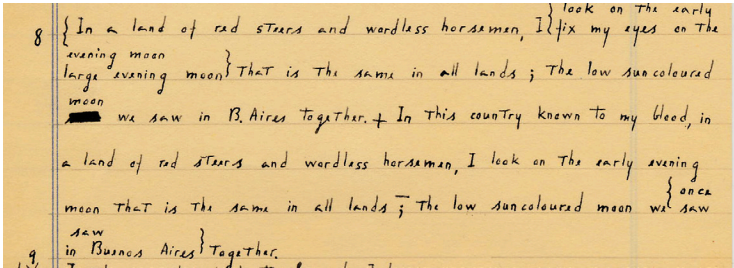 look on the early
8 { In a land of red steers and wordless horsemen, I { fix my eyes on the
evening moon
large evening moon } that is the same in all lands ; the low suncoloured
moon
we saw in B. Aires together. + In this country known to my blood, in
a land of red steers and wordless horsemen, I look on the early evening
{ once
moon that is the same in all lands ; the low suncoloured moon we saw
saw
in Buenos Aires } together.
9